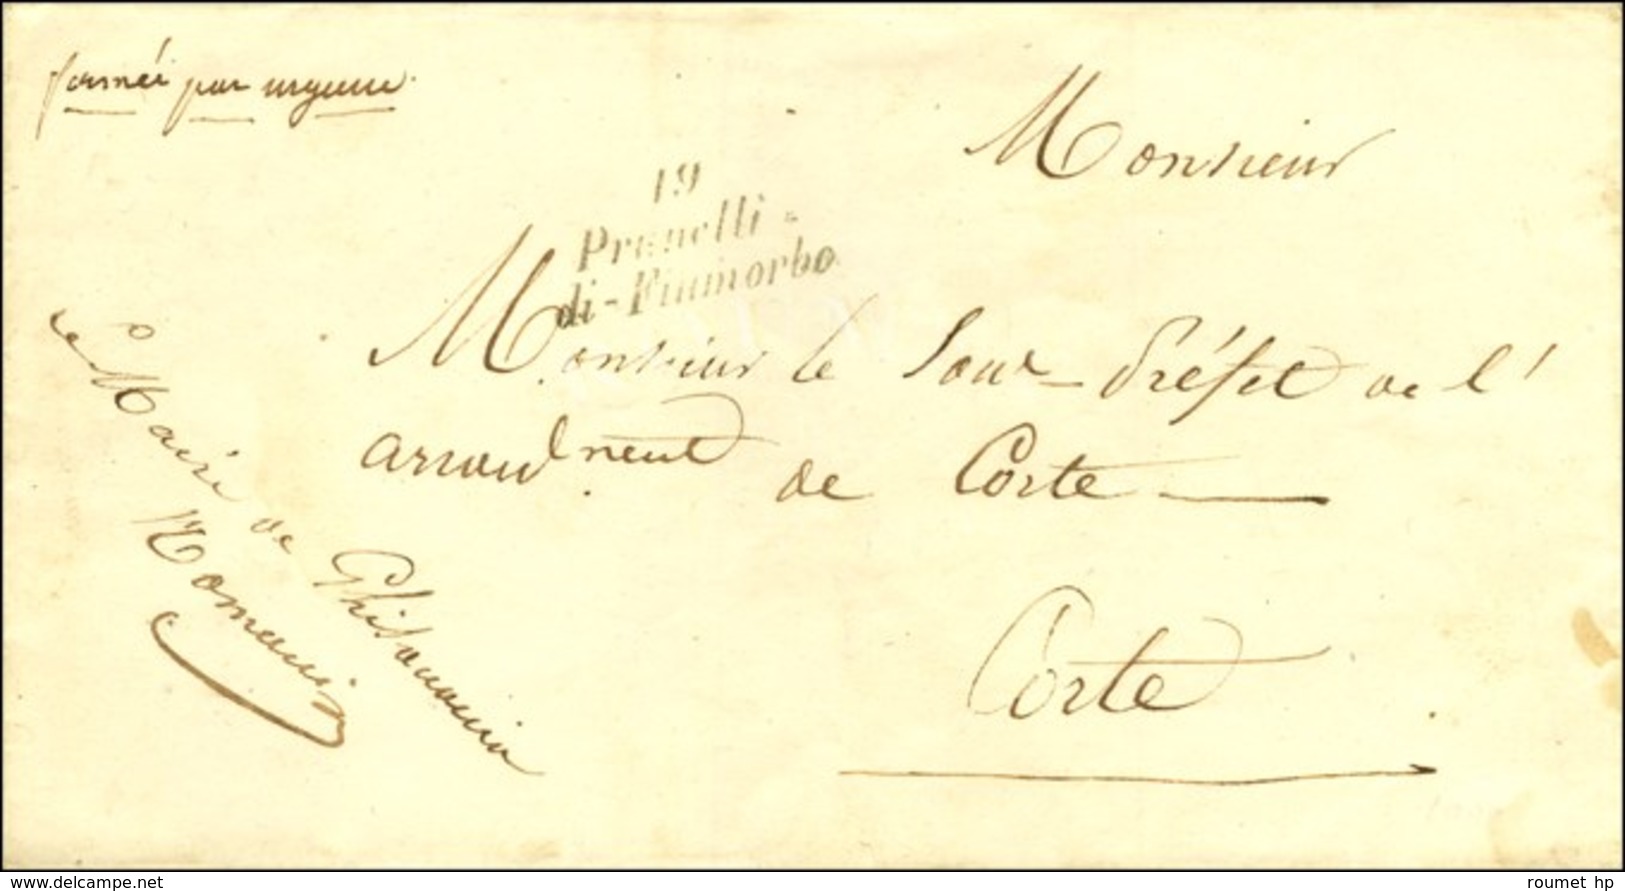 fermée par urgence
Monsieur
19
Prunelli-
di-Fiumorbo
Monsieur le Sous-Préfet de l'
arrondment de Corte
Corte
Le Maire de Ghisonaccia
www.delcampe.net
roumet hp